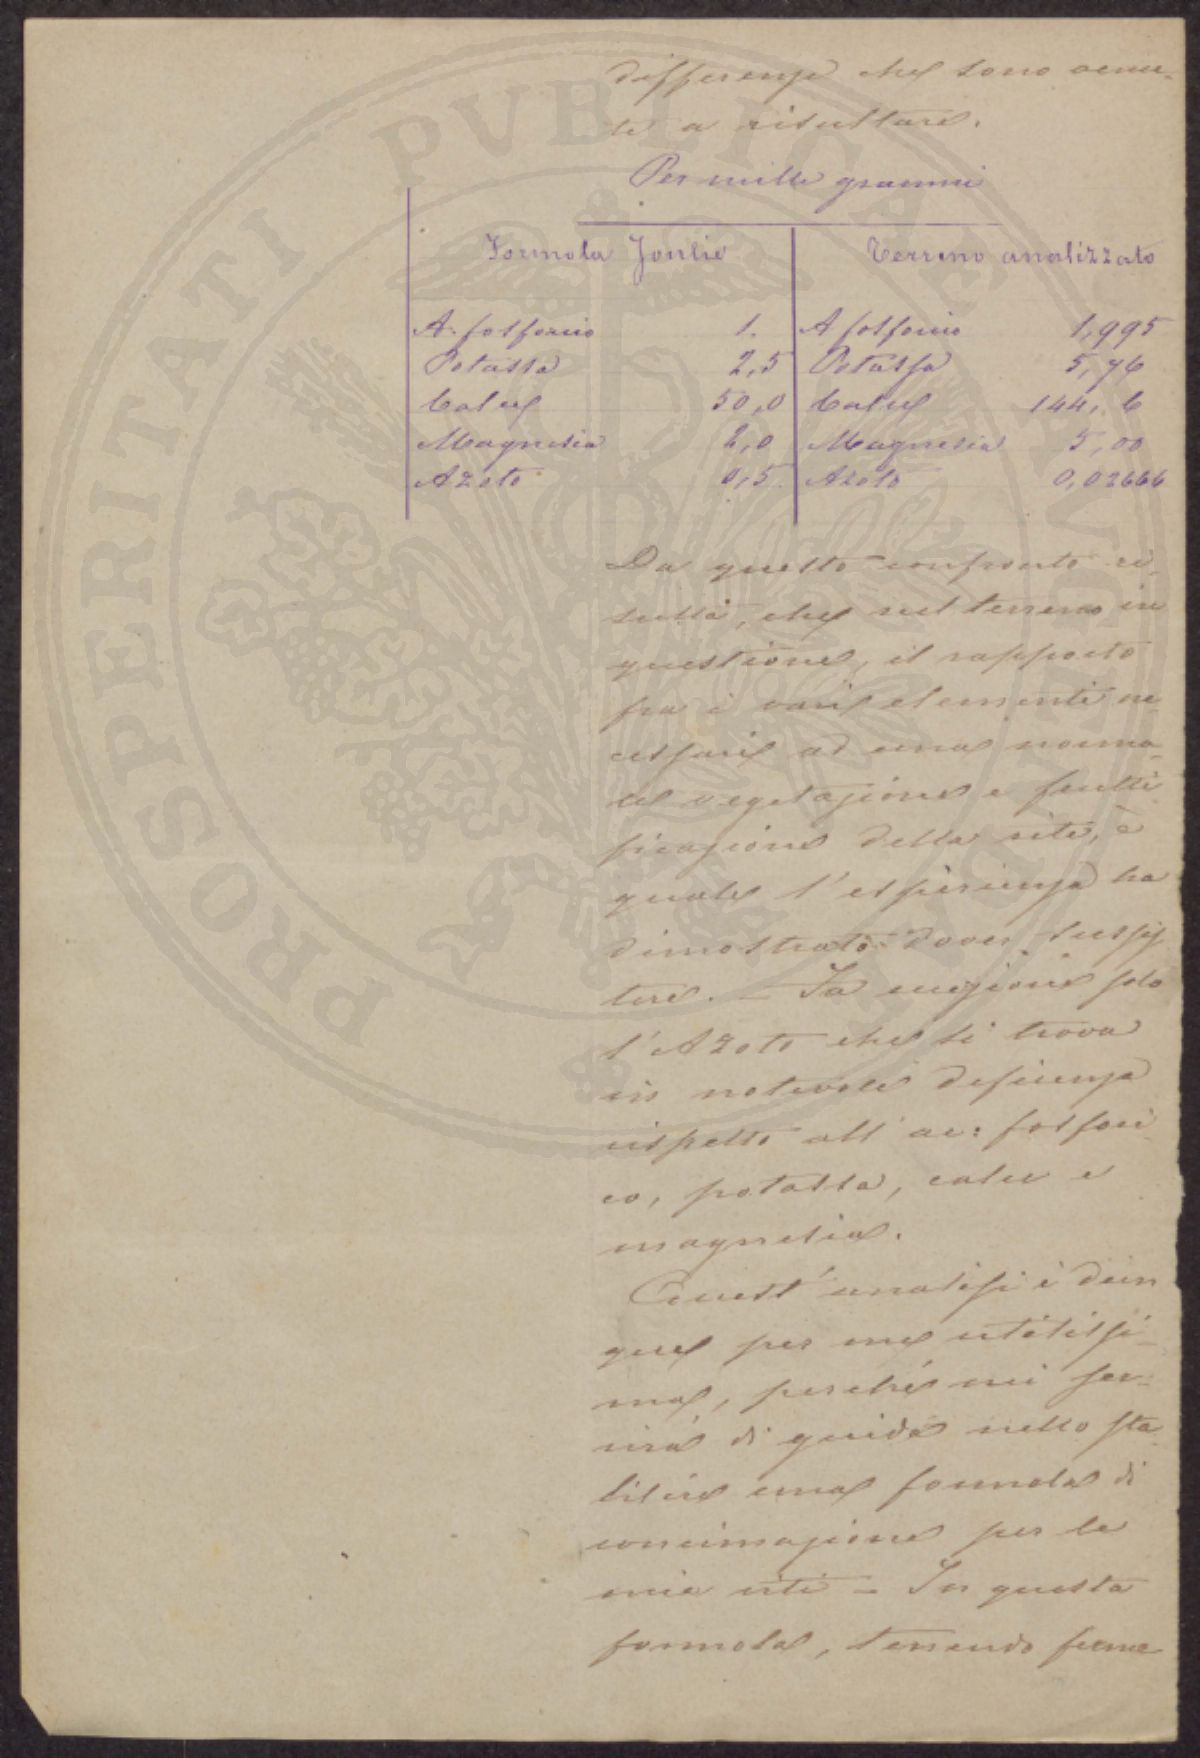 differenze che sono venu-
te a risultare.
Per mille grammi
Formola Joulie Terreno analizzato
A. fosforico 1. A fosforico 1,995
Potassa 2,5 Potassa 5,76
Calce 50,0 Calce 144,6
Magnesia 2,0 Magnesia 5,00
Azoto 0,5 Azoto 0,02666
Da questo confronto ri-
sulta, che nel terreno in
questione, il rapporto
fra i varii elementi ne
cessarii ad una norma-
le vegetazione e frutti
ficazione della vite, è
quale l'esperienza ha
dimostrato dover sussis
tere. – Fa eccezione solo
l'Azoto che si trova
in notevole deficienza
rispetto all'ac: fosfori
co, potassa, calce e
magnesia.
Quest'analisi è dun
que per me utilissi-
ma, perché mi ser-
virà di guida nello sta
bilire una formola di
concimazione per le
mie viti – In questa
formola, tenendo ferme
PROSPERITATI PVBLICAE